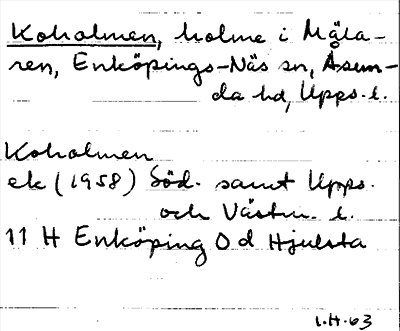 Koholmen, holme i Mäla-
ren, Enköpings-Näs sn, Åsun-
da hd, Upps. l.
Koholmen
ek (1958) Söd. samt Upps.
och Västm. l.
11 H Enköping 0 d Hjulsta
1.H.63